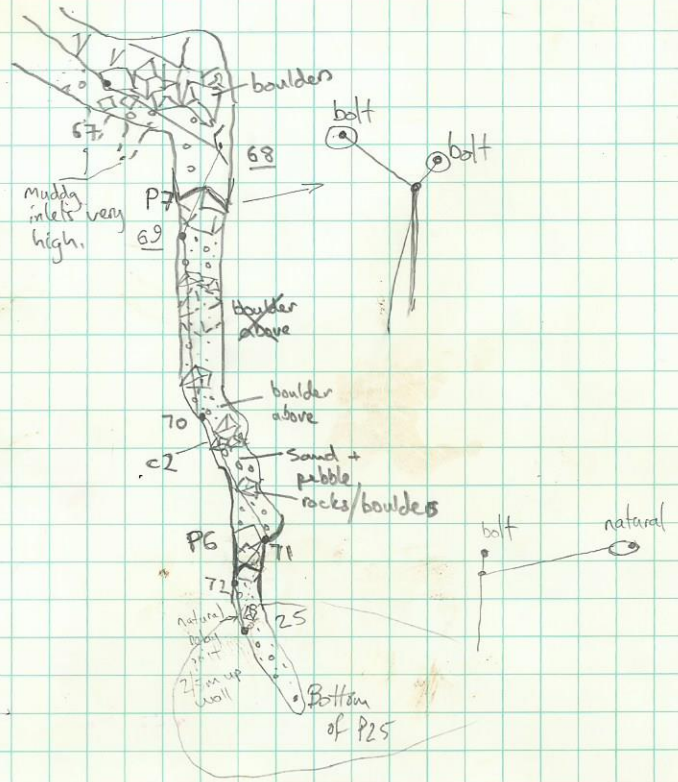 boulders
67
68
bolt
bolt
Muddy
inlets very
high.
P7
69
boulder
above
boulder
above
70
c2
Sand +
pebble
rocks/boulders
P6
71
bolt
natural
72
natural
25
2/3m up
wall
Bottom
of P25